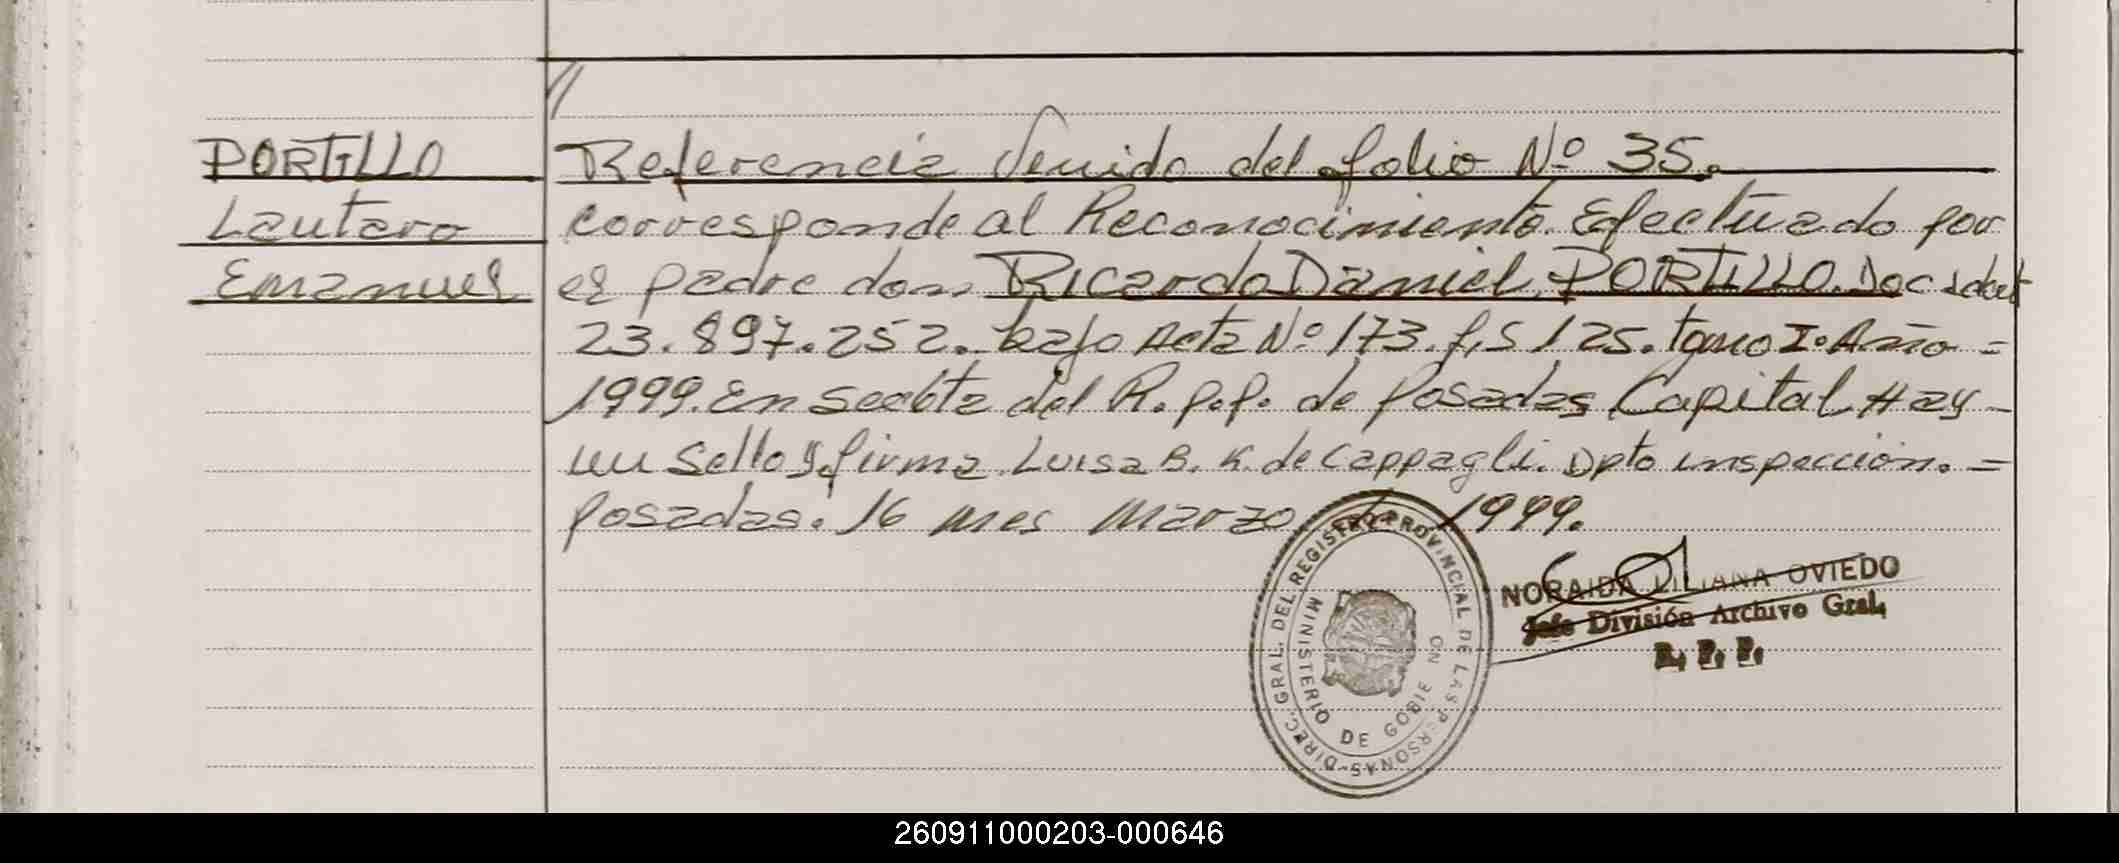 PORTILLO
Lautaro
Emanuel
//
Referencia Venida del folio Nº 35.
corresponde al Reconocimiento. Efectuado por
el padre don, Ricardo Daniel, PORTILLO. Doc Ident
23.897.252. bajo Acta Nº 173. f,S 125. tomo I. Año =
1999. En Seccta del R.p.p. de Posadas Capital Hay -
un Sello y firma Luisa B. K. de Cappagli. Dpto inspección. =
Posadas. 16 mes Marzo 1999.
DIREC. GRAL. DEL REGISTRO PROVINCIAL DE LAS PERSONAS-
MINISTERIO DE GOBIERNO
NORAIDA LILIANA OVIEDO
Jefe División Archivo Gral,
R. P. P.
260911000203-000646